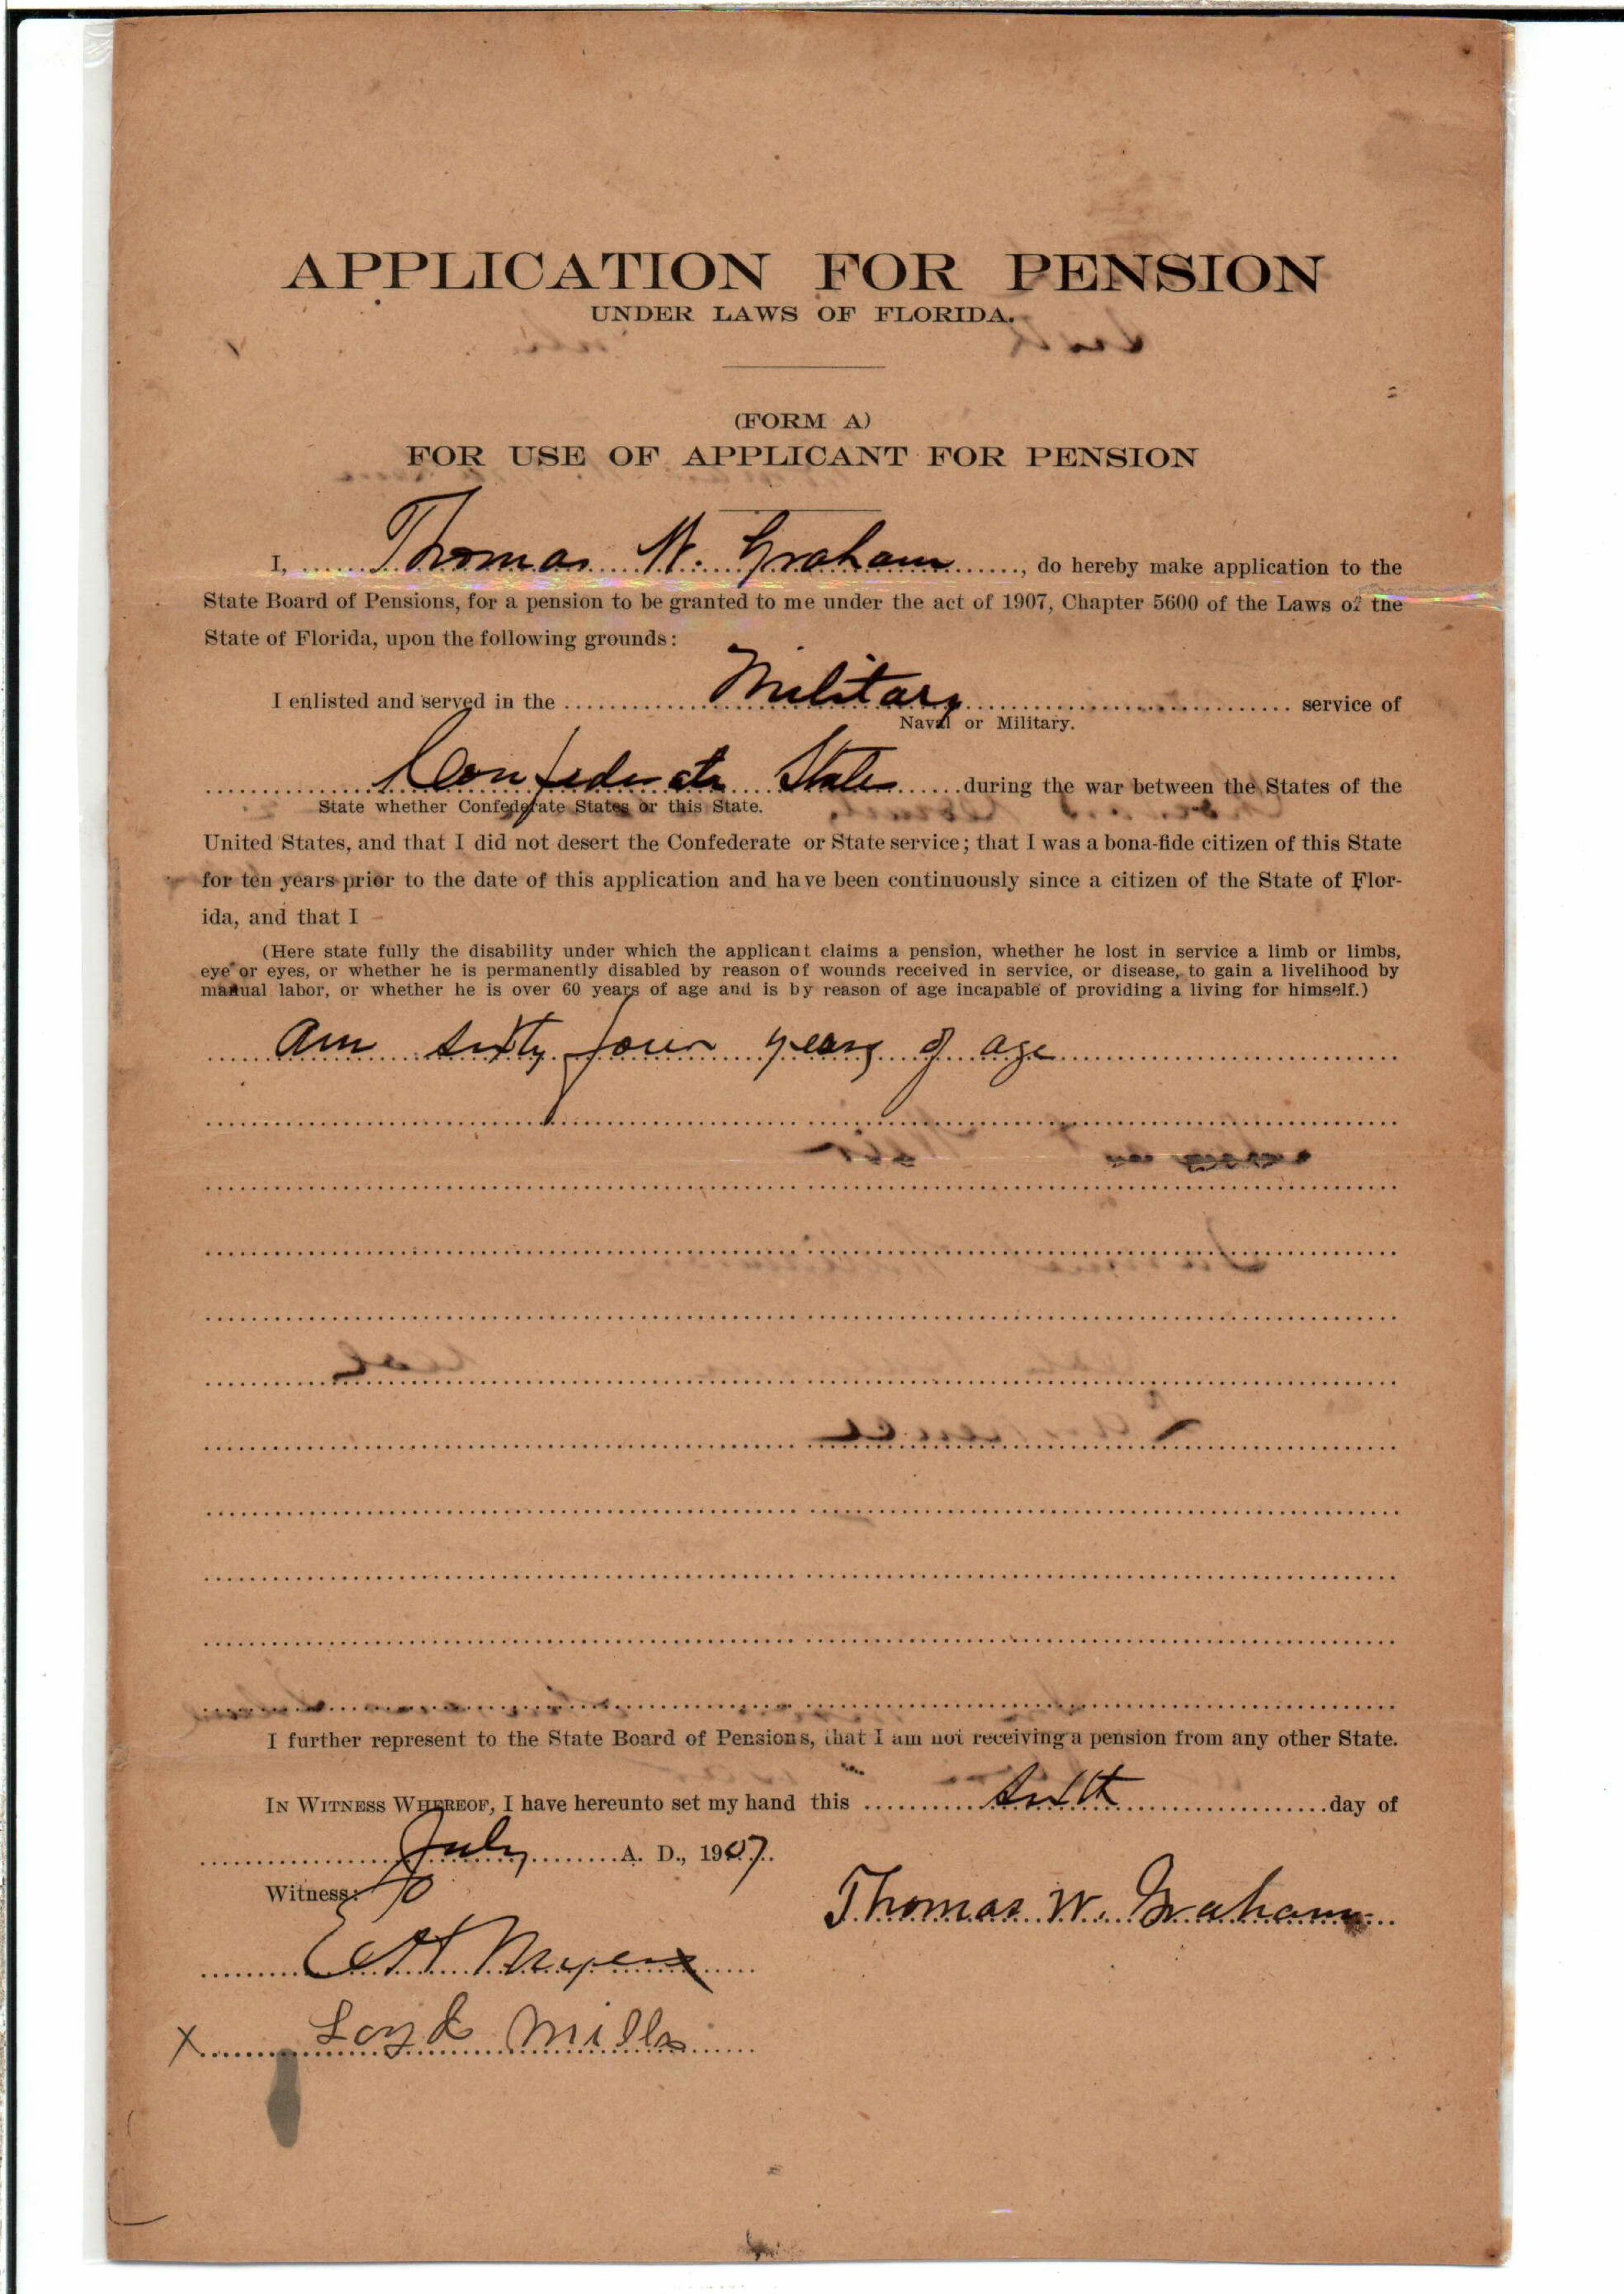 APPLICATION FOR PENSION
UNDER LAWS OF FLORIDA.
(FORM A)
FOR USE OF APPLICANT FOR PENSION
I, Thomas W. Graham, do hereby make application to the
State Board of Pensions, for a pension to be granted to me under the act of 1907, Chapter 5600 of the Laws of the
State of Florida, upon the following grounds:
I enlisted and served in the Military service of
Naval or Military.
Confederate States during the war between the States of the
State whether Confederate States or this State.
United States, and that I did not desert the Confederate or State service; that I was a bona-fide citizen of this State
for ten years prior to the date of this application and have been continuously since a citizen of the State of Flor-
ida, and that I
(Here state fully the disability under which the applicant claims a pension, whether he lost in service a limb or limbs,
eye or eyes, or whether he is permanently disabled by reason of wounds received in service, or disease, to gain a livelihood by
manual labor, or whether he is over 60 years of age and is by reason of age incapable of providing a living for himself.)
Am sixty four years of age
I further represent to the State Board of Pensions, that I am not receiving a pension from any other State.
IN WITNESS WHEREOF, I have hereunto set my hand this sixth day of
July A. D., 1907.
Witness:
Thomas W. Graham
Myers
X Loyd Mills